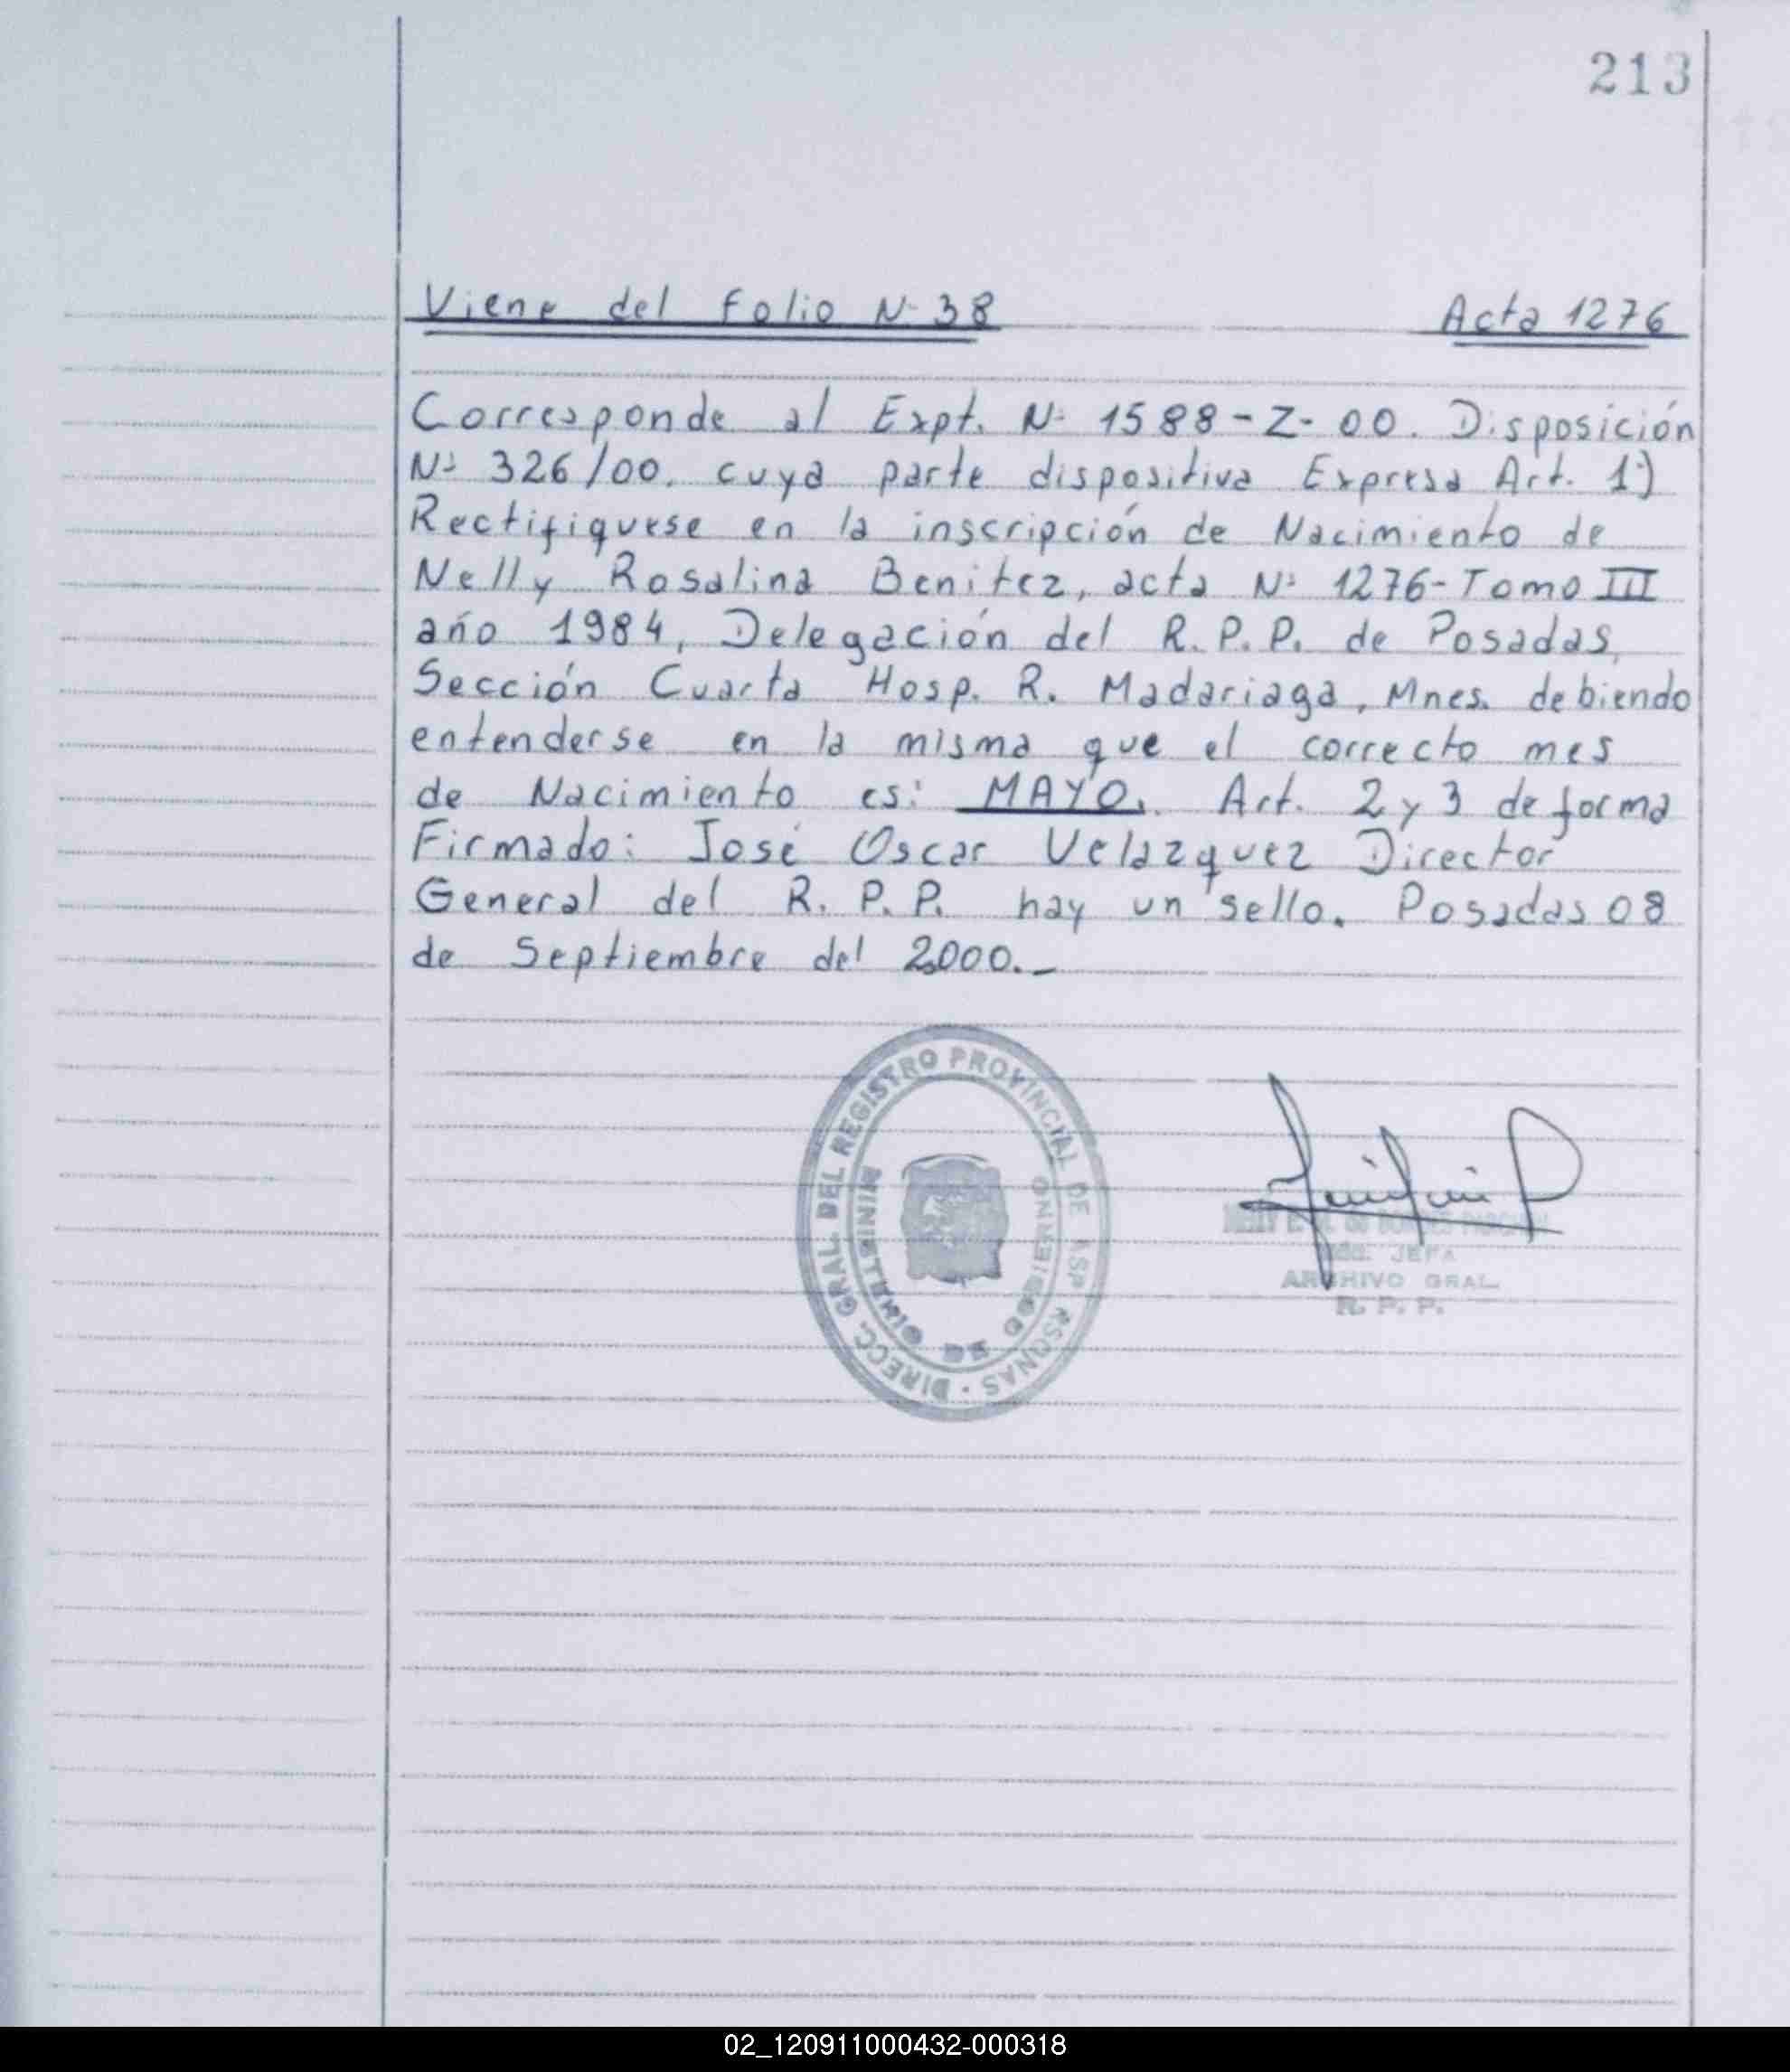 213
Viene del Folio Nº 38 Acta 1276
Corresponde al Expt. Nº 1588-Z-00. Disposición
Nº 326/00. cuya parte dispositiva Expresa Art. 1º)
Rectifiquese en la inscripción de Nacimiento de
Nelly Rosalina Benitez, acta Nº 1276-Tomo III
año 1984, Delegación del R.P.P. de Posadas,
Sección Cuarta Hosp. R. Madariaga, Mnes. debiendo
entenderse en la misma que el correcto mes
de Nacimiento es: MAYO. Art. 2 y 3 de forma
Firmado: José Oscar Velazquez Director
General del R. P. P. hay un sello. Posadas 08
de Septiembre del 2000.-
DIRECC. GRAL. DEL REGISTRO PROVINCIAL DE
MINISTERIO DE GOBIERNO
JEFA
ARCHIVO GRAL.
R. P. P.
02_120911000432-000318